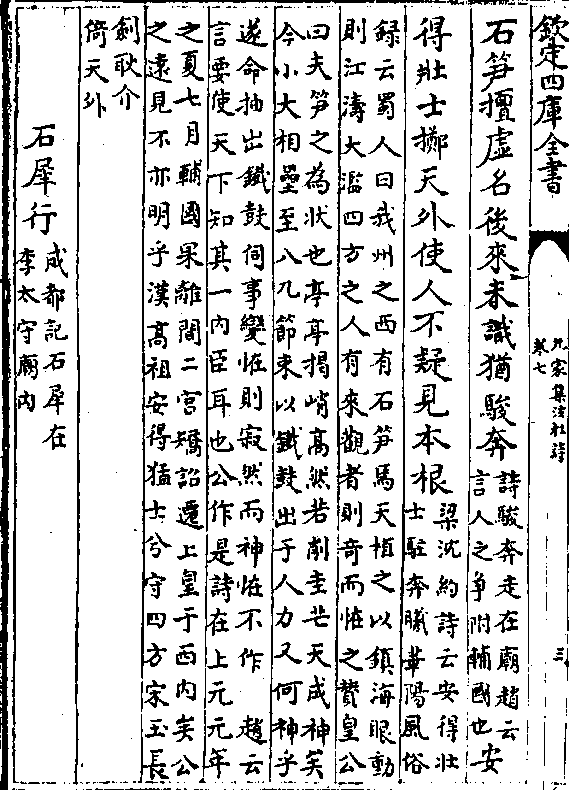 欽定四庫全書
九家集注杜詩
卷七
三
石笋擅虛名後來未識猶駿奔
詩駿奔走在廟趙云
言人之争附輔國也
安
得壯士擲天外使人不疑見本根
梁沈約詩云安得壯
士駐奔曦華陽風俗
録云蜀人曰我州之西有石笋焉天植之以鎮海眼動
則江濤大濫四方之人有來觀者則奇而恠之贊皇公
曰夫笋之為狀也亭亭揭峭高然若削圭芒天成神矣
今小大相壘至八九節末以鐵鼓出于人力又何神乎
遂命抽出鐵鼓伺事變恠則寂然而神恠不作 趙云
言要使天下知其一内臣耳也公作是詩在上元元年
之夏七月輔國果離間二宫矯詔遷上皇于西内矣公
之遠見不亦明乎漢高祖安得猛士兮守四方宋玉長
劍耿介
倚天外
石犀行
成都記石犀在
李太守廟内